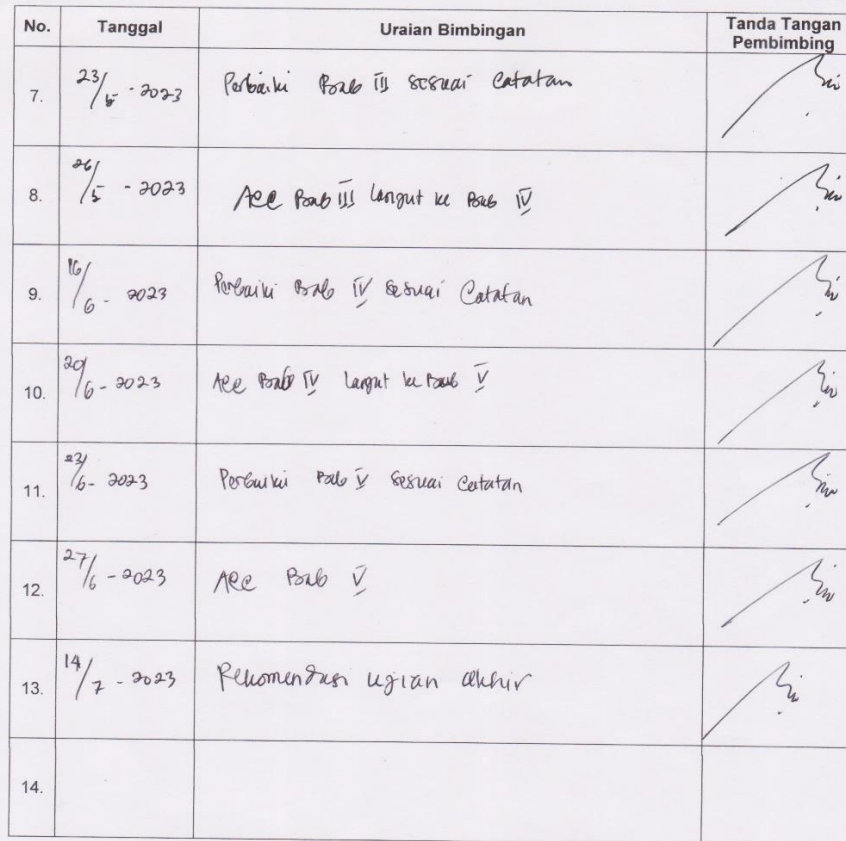 No. Tanggal Uraian Bimbingan Tanda Tangan Pembimbing
7. 23/5 - 2023 Perbaiki Bab III sesuai Catatan
8. 26/5 - 2023 Acc Bab III Lanjut ke Bab IV
9. 16/6 - 2023 Perbaiki Bab IV sesuai Catatan
10. 20/6 - 2023 Acc Bab IV Lanjut ke Bab V
11. 23/6 - 2023 Perbaiki Bab V sesuai Catatan
12. 27/6 - 2023 Acc Bab V
13. 14/7 - 2023 Rekomendasi ujian akhir
14.